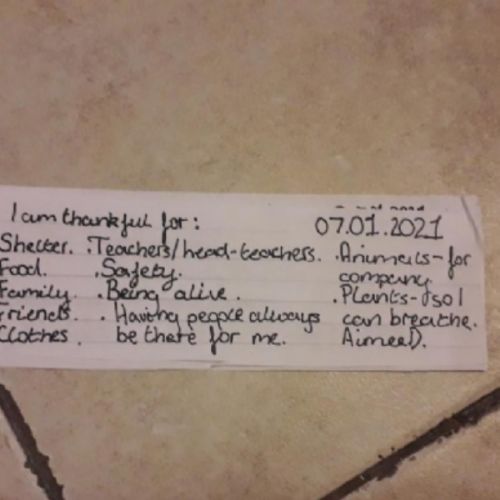 I am thankful for:
07.01.2021
Shelter.
Food.
Family.
Friends.
Clothes.
. Teachers/head-teachers.
. Safety.
. Being alive.
. Having people always
be there for me.
. Animals - for
company.
. Plants - so I
can breathe.
Aimee D.